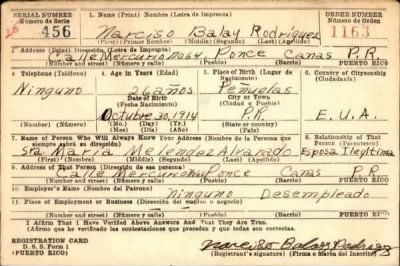 SERIAL NUMBER
Número de Serie
456
1. Name (Print) Nombre (Letra de Imprenta)
ORDER NUMBER
Número de Orden
1163
Narciso Balay Rodriguez
(First) (Primer Nombre) (Middle) (Segundo) (Last) (Apellido)
2 Address (Print) Dirección (Letra de Imprenta)
Calle Mercurio No 64 Ponce Canas P.R.
(Number and street) (Número y calle) (Town) (Pueblo) (Barrio) PUERTO RICO
3 Telephone (Teléfono)
4 Age in Years (Edad)
5 Place of Birth (Lugar de Nacimiento)
6 Country of Citizenship
(Ciudadanía)
Ninguno
26 años
Peñuelas
Date of Birth
(Fecha Nacimiento)
City or Town
(Ciudad o Pueblo)
Octubre 30, 1914
P.R.
E. U. A.
(Mo.) (Day) (Yr.)
(Mes) (Día) (Año)
State or country
(País)
7 Name of Person Who Will Always Know Your Address (Nombre de la Persona que siempre sabrá su dirección)
8 Relationship of That Person (Parentesco)
Sra. Maria Melendez Alvarado Esposa Ilegítima
(First) (Nombre) (Middle) (Segundo) (Last) (Apellido)
9 Address of That Person (Dirección de esa persona)
Calle Mercurio No 64 Ponce Canas P.R.
(Number and street) (Número y calle) (Town) (Pueblo) (Barrio) PUERTO RICO
10 Employer's Name (Nombre del Patrono)
Ninguno Desempleado
11 Place of Employment or Business (Dirección del empleo o negocio)
(Number and street) (Número y calle) (Town) (Pueblo) (Barrio) PUERTO RICO
I Affirm That I Have Verified Above Answers And That They Are True.
(Afirmo que he verificado las contestaciones que preceden y que todas son correctas).
REGISTRATION CARD
D. S. S. Form 1
(PUERTO RICO)
Narciso Balay Rodriguez
(Registrant's signature) (Firma o marca del Inscrito)